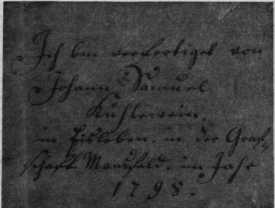 Ich bin verfertiget von
Johann Samuel
Kühlewein,
in Eisleben, in der Graf-
schaft Mansfeld, im Jahr
1798.